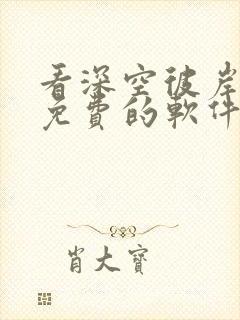 看深空彼岸
免費的軟件
肖大寶